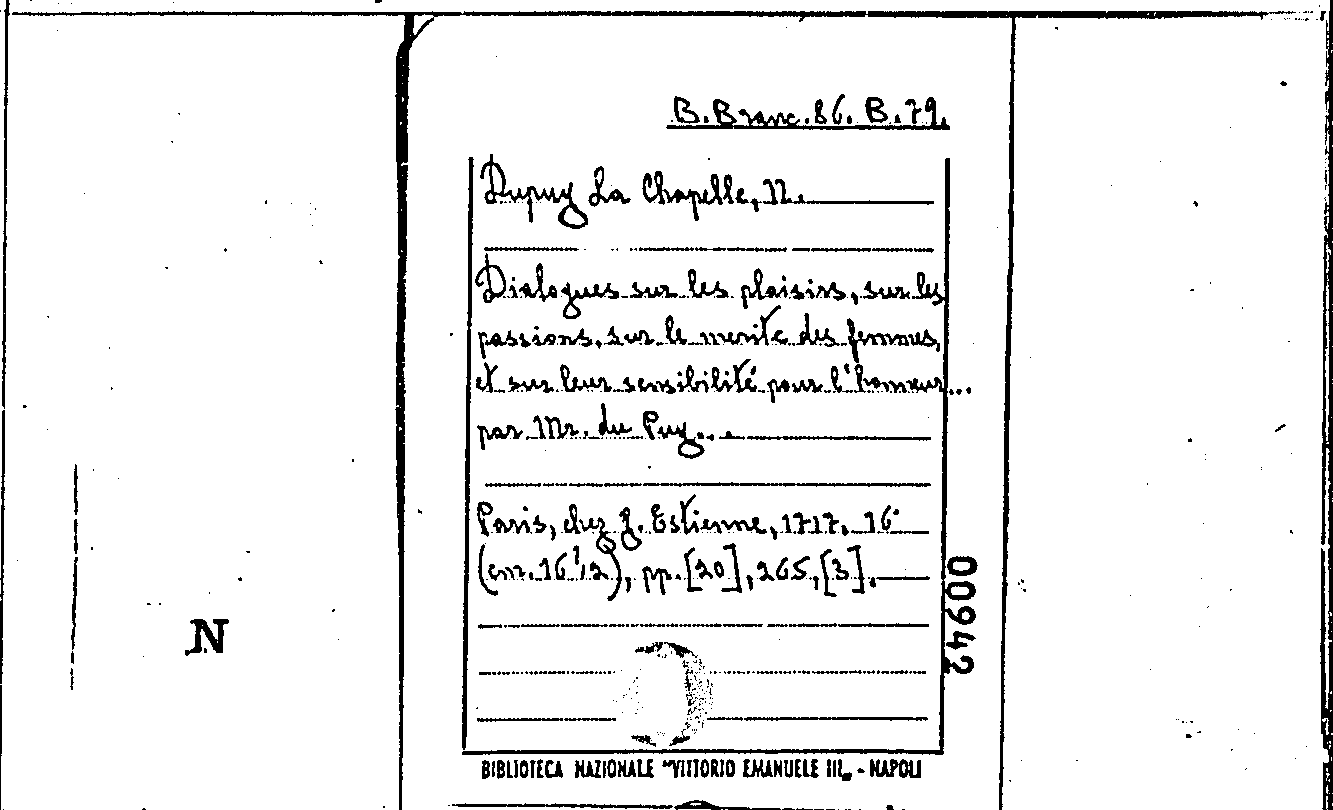 B. Branc. 86. B. 79.
Dupuy La Chapelle, N.
Dialogues sur les plaisirs, sur les
passions, sur le merite des femmes,
et sur leur sensibilité pour l'honneur...
par Mr. du Puy...
Paris, chez J. Estienne, 1717. 16°
(cm. 16½), pp. [20], 265, [3].
00942
N
BIBLIOTECA NAZIONALE "VITTORIO EMANUELE III„ - NAPOLI